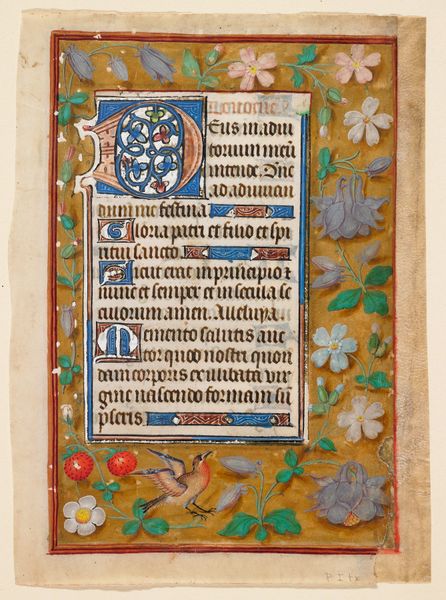 Deus in adiu
torium meū
intende. Dñe
ad adiuuan
dum me festina
Gloria patri et filio et spi
ritui sancto.
Sicut erat in principio ⁊
nunc et semper et in secula se
culorum amen. Alleluya.
Memento salutis auc
tor quod nostri quon
dam corporis ex illibata uir
gine nascendo formam sū
pseris